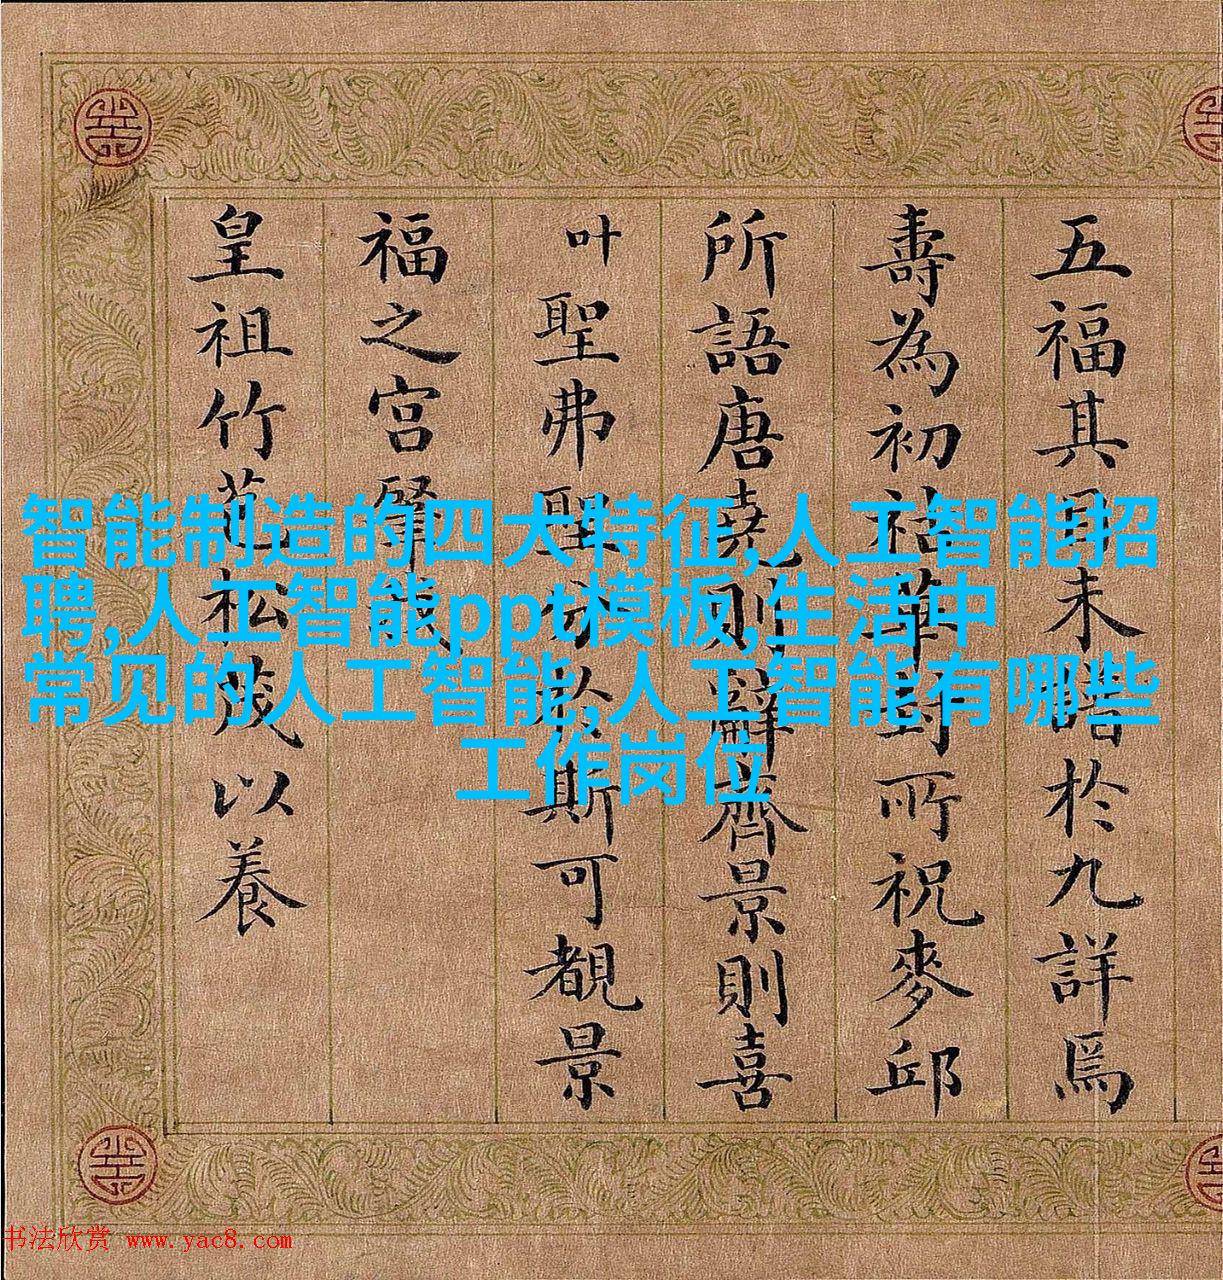 五福其目未於九詳焉
壽為初祜華封所祝麥邱
所語唐堯則辭齊景則喜
叶聖弗聖於斯可覩景
福之宮肇
皇祖竹苞松茂以養
智能制造的四大特征,人工智能招
聘,人工智能ppt模板,生活中
常见的人工智能,人工智能有哪些
工作岗位
书法欣赏 www.yac8.com